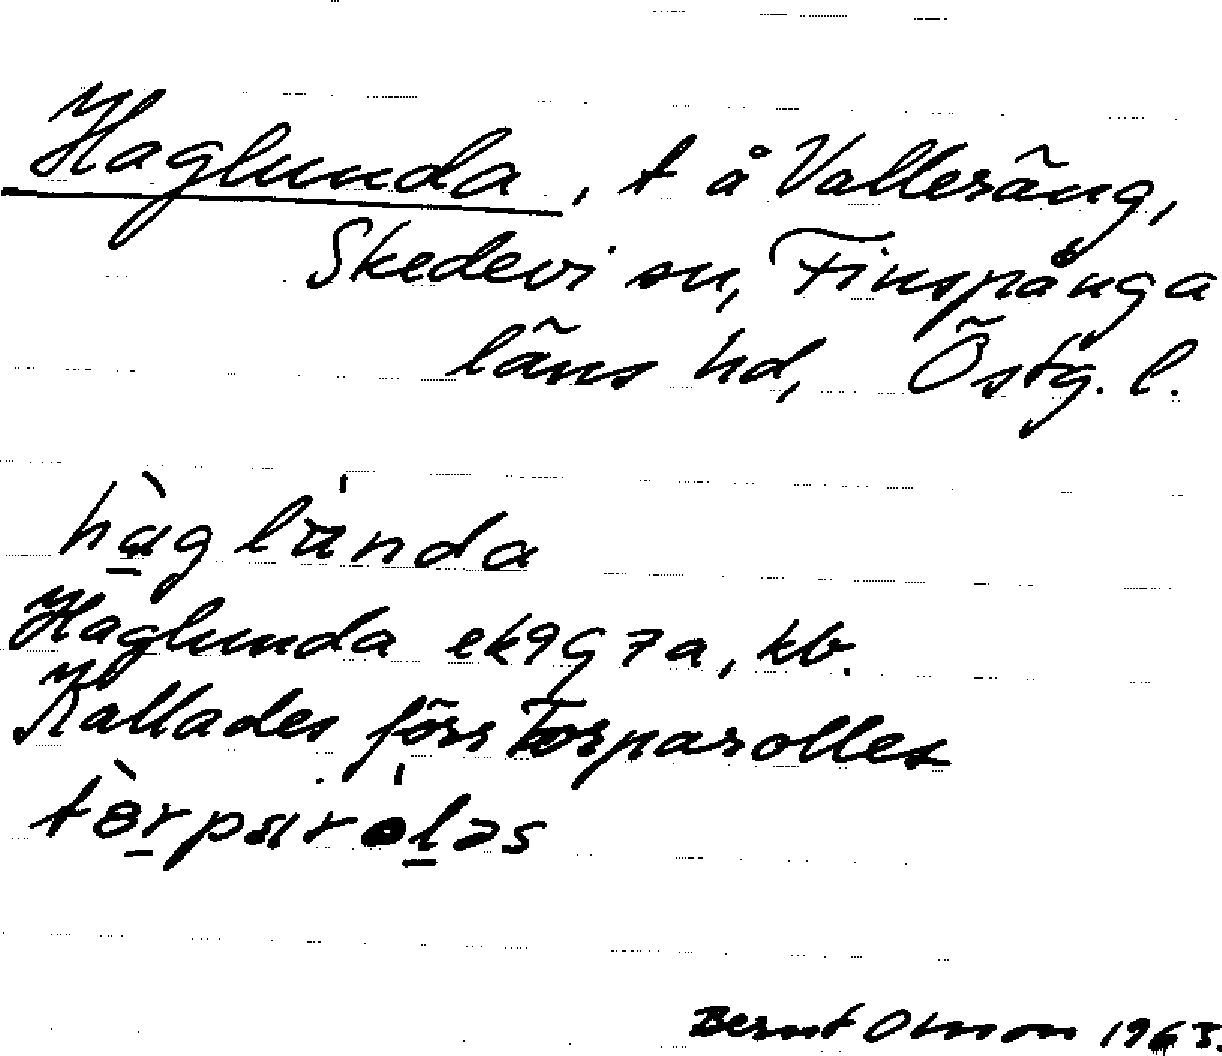 Haglunda, t å Valleräng,
Skedevi sn, Finspånga
läns hd, Östg. l.
hàglúnda
Haglunda ek 9G 7a, kb.
Kallades förr Torparolles
tòrparòləs
Bernt Olsson 1963.